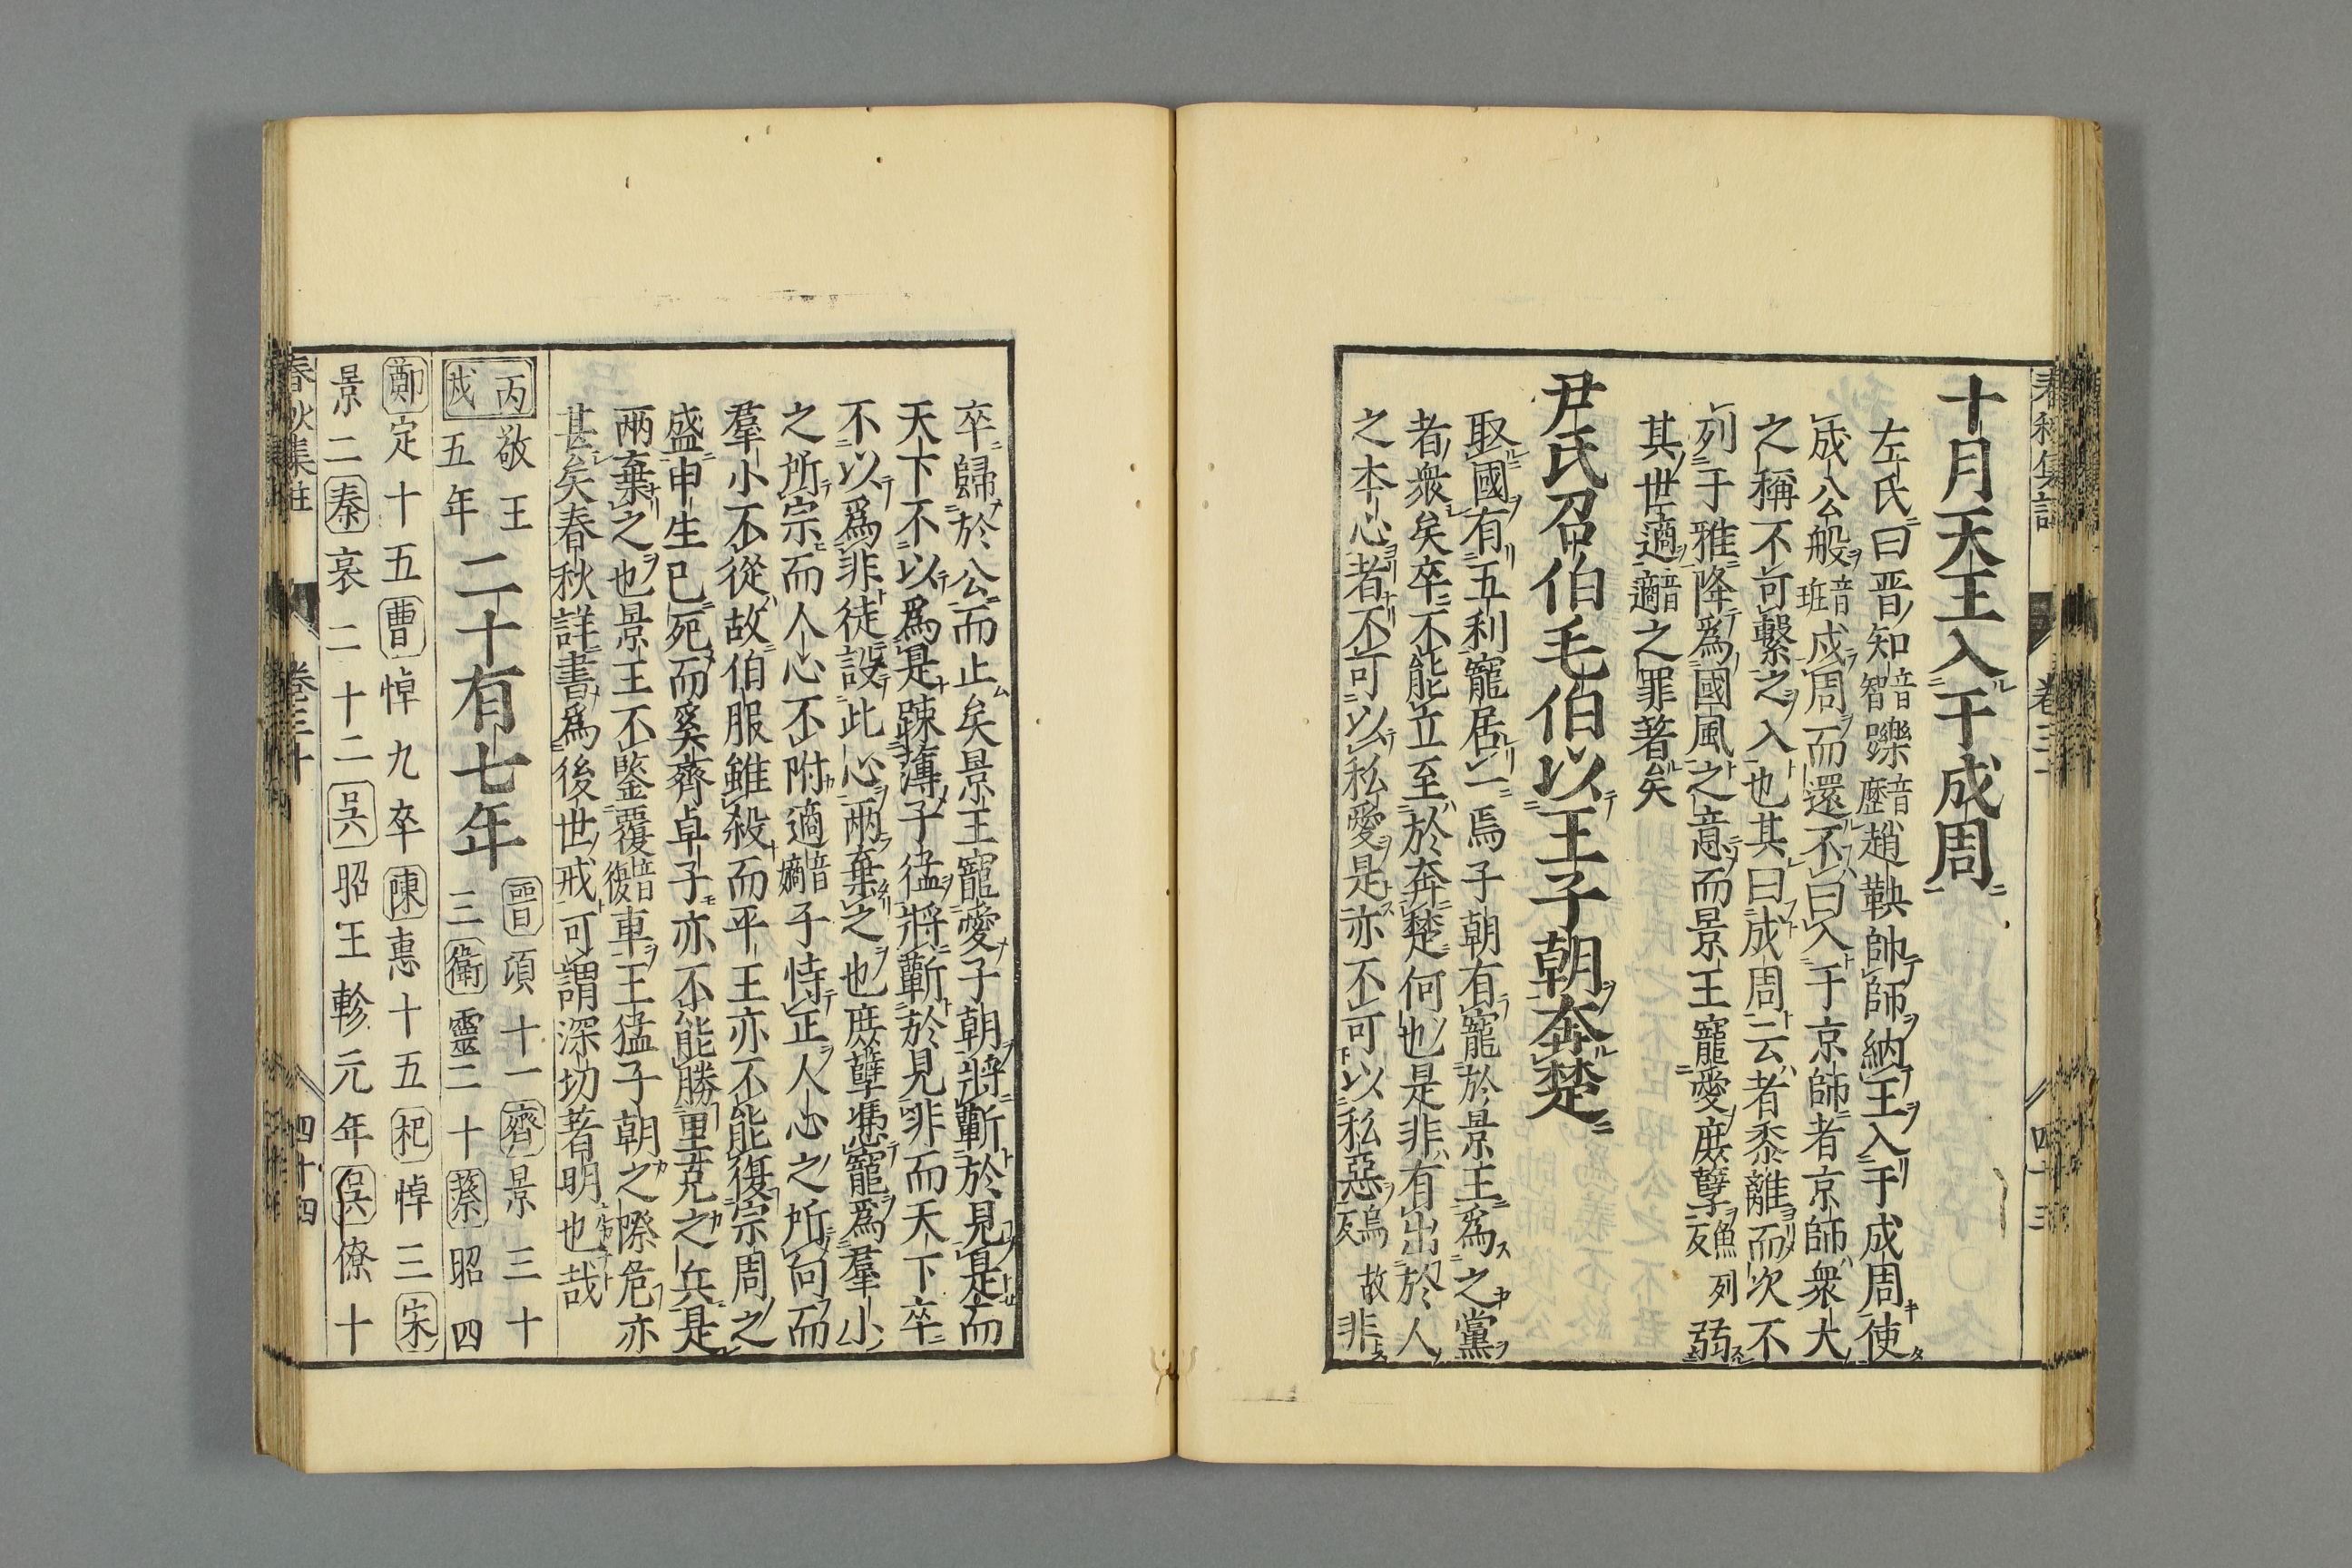 十月天王入于成周
左氏曰晋知音智躒音歷趙鞅帥師納王入于成周使
成公般音班戍周而還不曰入于京師者京師衆大
之稱不可繫之入也其曰成周云者黍離而次不
列于雅降爲國風之意而景王寵愛庶孽魚列反弱
其世適音嫡之罪著矣
尹氏召伯毛伯以王子朝奔楚
取國有五利寵居一焉子朝有寵於景王爲之黨
者衆矣卒不能立至於奔楚何也是非有出於人
之本心者不可以私愛是亦不可以私惡烏故反非
卒歸於公而止矣景王寵愛子朝將蘄於見是而
天下不以爲是踈薄子猛將蘄於見非而天下卒
不以爲非徒設此心兩棄之也庶孽憑寵爲羣小
之所宗而人心不附適音嫡子恃正人心之所向而
羣小不從故伯服雖殺而平王亦不能復宗周之
盛申生已死而奚齊卓子亦不能勝里克之兵是
兩棄之也景王不鑒覆音復車王猛子朝之際危亦
甚矣春秋詳書爲後世戒可謂深切著明也哉
丙戌敬王五年二十有七年晉頃十一齊景三十三衛靈二十蔡昭四
鄭定十五曹悼九卒陳惠十五杞悼三宋
景二秦哀二十二吳昭王軫元年吳僚十
春秋集註 卷三十 四十四